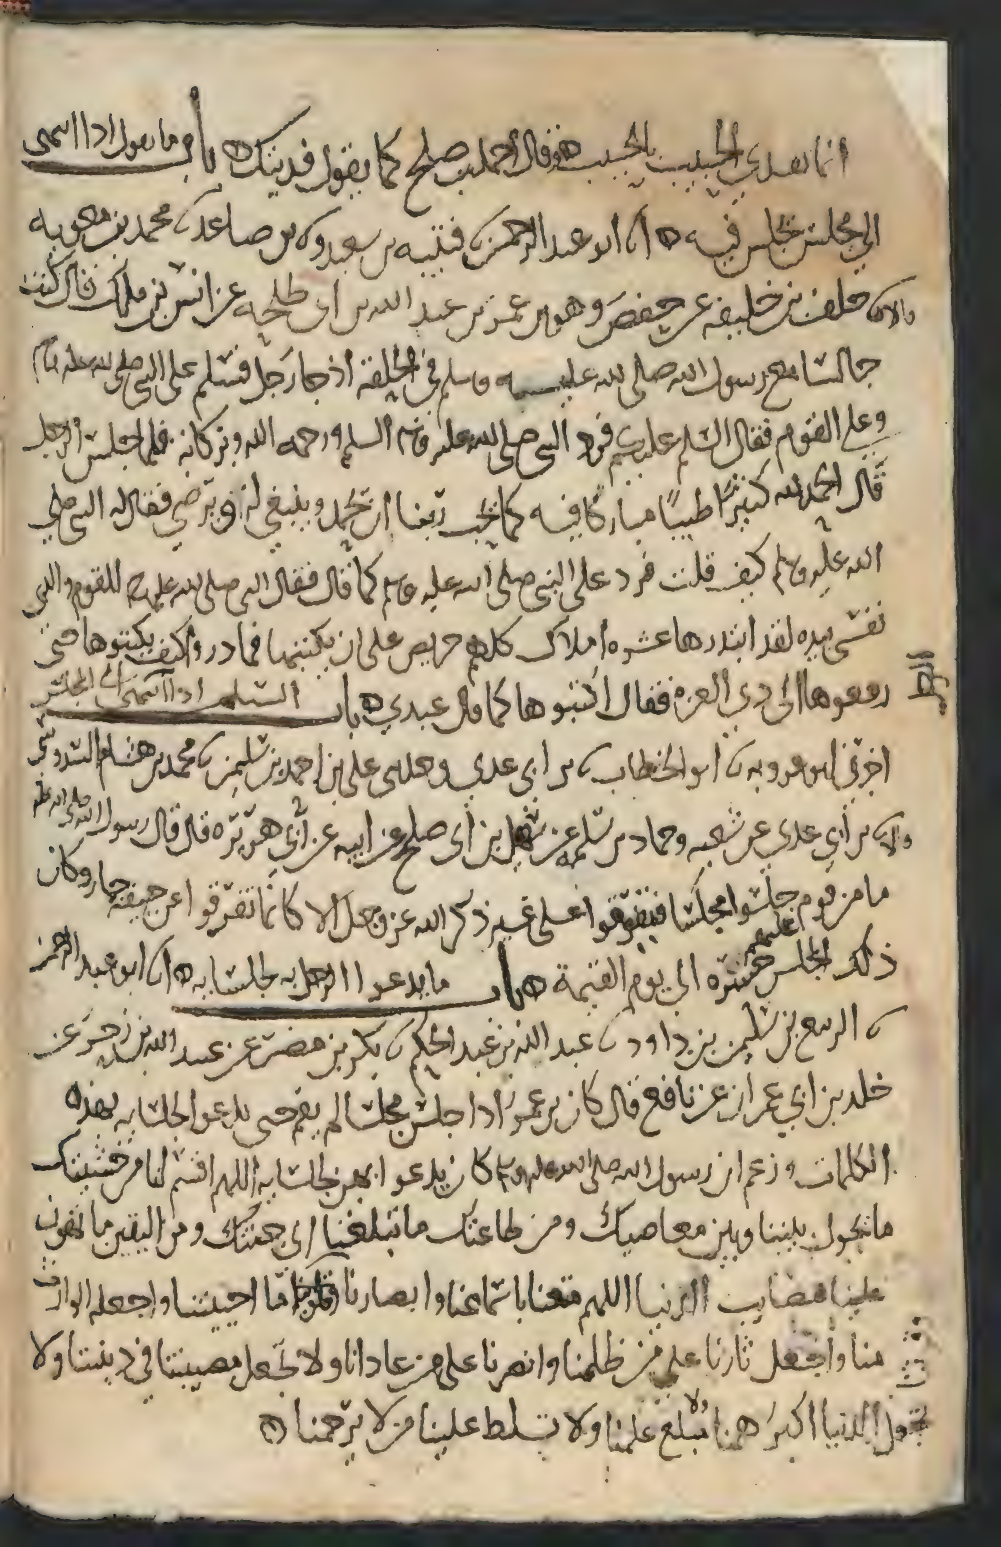 انما يفدي الحبيب بالحبيب ه وقال احمد بن صلح كما يقول فديتك ه باب ما يقول اذا انتهى
الى مجلس فجلس فيه ه انا ابو عبد الرحمن نا قتيبه بن سعيد وانا بن صاعد نا محمد بن معويه
قالا نا خلف بن خليفه عن حفص وهو بن عمر بن عبد الله بن ابي طلحه عن انس بن ملك قال كنت
جالسا مع رسول الله صلى الله عليه وسلم في الحلقه اذ جا رجل فسلم على النبي صلى الله عليه وسلم
وعلى القوم فقال السلم عليكم فرد النبي صلى الله عليه وسلم السلم ورحمه الله وبركاته فلما جلس الرجل
قال الحمد لله كثيرا طيبا مباركا فيه كما يحب ربنا ان يحمد وينبغي له ويرضى فقال له النبي صلى
الله عليه وسلم كيف قلت فرد على النبي صلى الله عليه وسلم كما قال فقال النبي صلى الله عليه للقوم والذي
نفسي بيده لقد ابتدرها عشره املاك كلهم حريص على ان يكتبها فما دروا كيف يكتبوها حتى
رفعوها الى ذي العزه فقال اكتبوها كما قال عبدي ه باب السلم اذا انتهى الى المجلس
اخبرني ابو عروبه نا ابو الخطاب نا بن ابي عدي وحدثني علي بن احمد بن سليمن نا محمد بن هشام السدوسي
قالا نا بن ابي عدي عن شعبه وحماد بن سلمه عن سهيل بن ابي صلح عن ابيه عن ابي هريره قال قال رسول الله صلى الله عليه
ما من قوم جلسوا مجلسا فتفرقوا على غير ذكر الله عز وجل الا كانما تفرقوا عن جيفه حمار وكان
ذلك المجلس عليهم حسره الى يوم القيمة ه باب ما يدعوا الرجل به لجلسايه ه انا ابو عبد الرحمن
نا الربيع بن سليمن بن داود نا عبد الله بن عبد الحكم نا بكر بن مضر عن عبيد الله بن زحر عن
خلد بن ابي عمران عن نافع قال كان بن عمر اذا جلس مجلسا لم يقم حتى يدعو الجلسايه بهذه
الكلمات وزعم ان رسول الله صلى الله عليه وسلم كان يدعوا بهن لجلسايه اللهم اقسم لنا من خشيتك
ما تحول بيننا وبين معاصيك ومن طاعتك ما تبلغنا الى جنتك ومن اليقين ما تهون
علينا مصايب الدنيا اللهم متعنا باسماعنا وابصارنا وقوتنا ما احييتنا واجعله الوارث
منا واجعل ثارنا على من ظلمنا وانصرنا على من عادانا ولا تجعل مصيبتنا في ديننا ولا
تجعل الدنيا اكبر همنا ولا مبلغ علمنا ولا تسلط علينا من لا يرحمنا ه